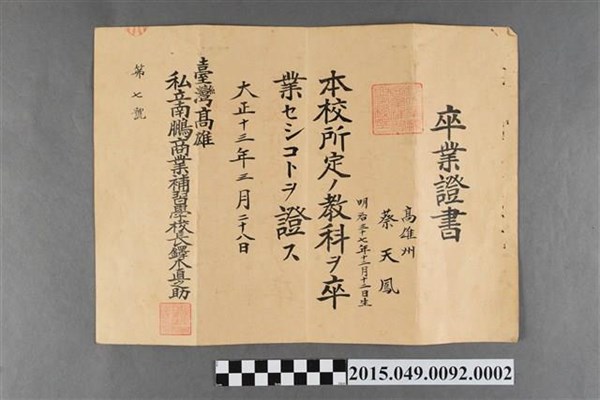 卒業證書
高雄州
蔡天鳳
明治三十七年十二月十三日生
本校所定ノ教科ヲ卒
業セシコトヲ證ス
大正十三年三月二十八日
臺灣高雄
私立南鵬商業補習學校長鐸木直之助
第七號
2015.049.0092.0002